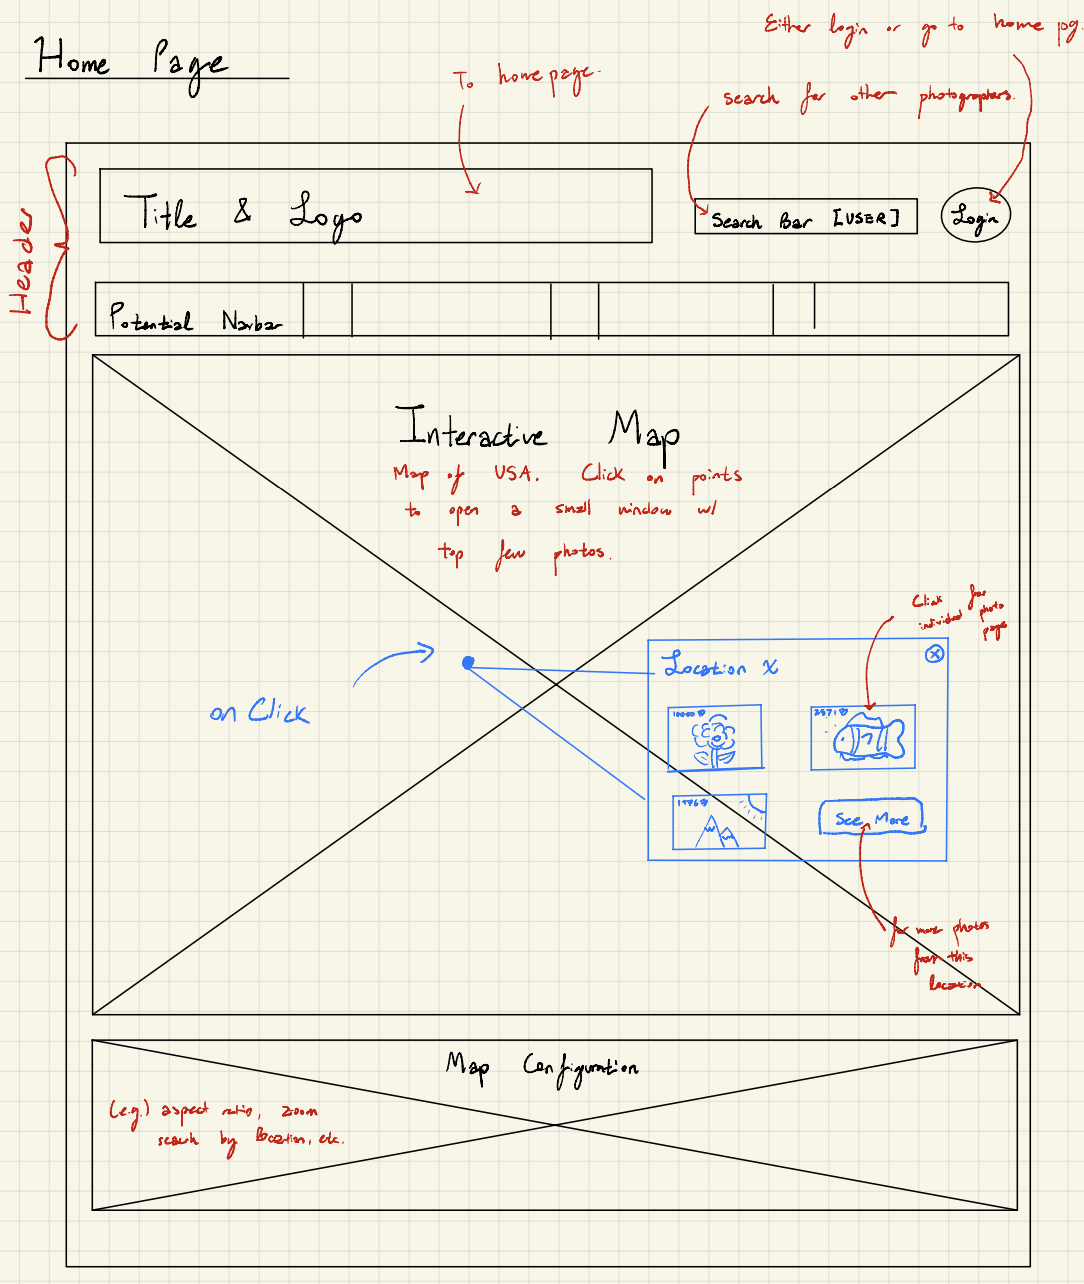 Home Page
Either login or go to home pg.
To homepage.
search for other photographers.
Header
Title & Logo
Search Bar [USER]
Login
Potential Navbar
Interactive Map
Map of USA. Click on points
to open a small window w/
top few photos.
Click for
individual photo
page
on Click
Location X
See More
for more photos
from this
location
Map Configuration
(e.g.) aspect ratio, zoom
search by location, etc.